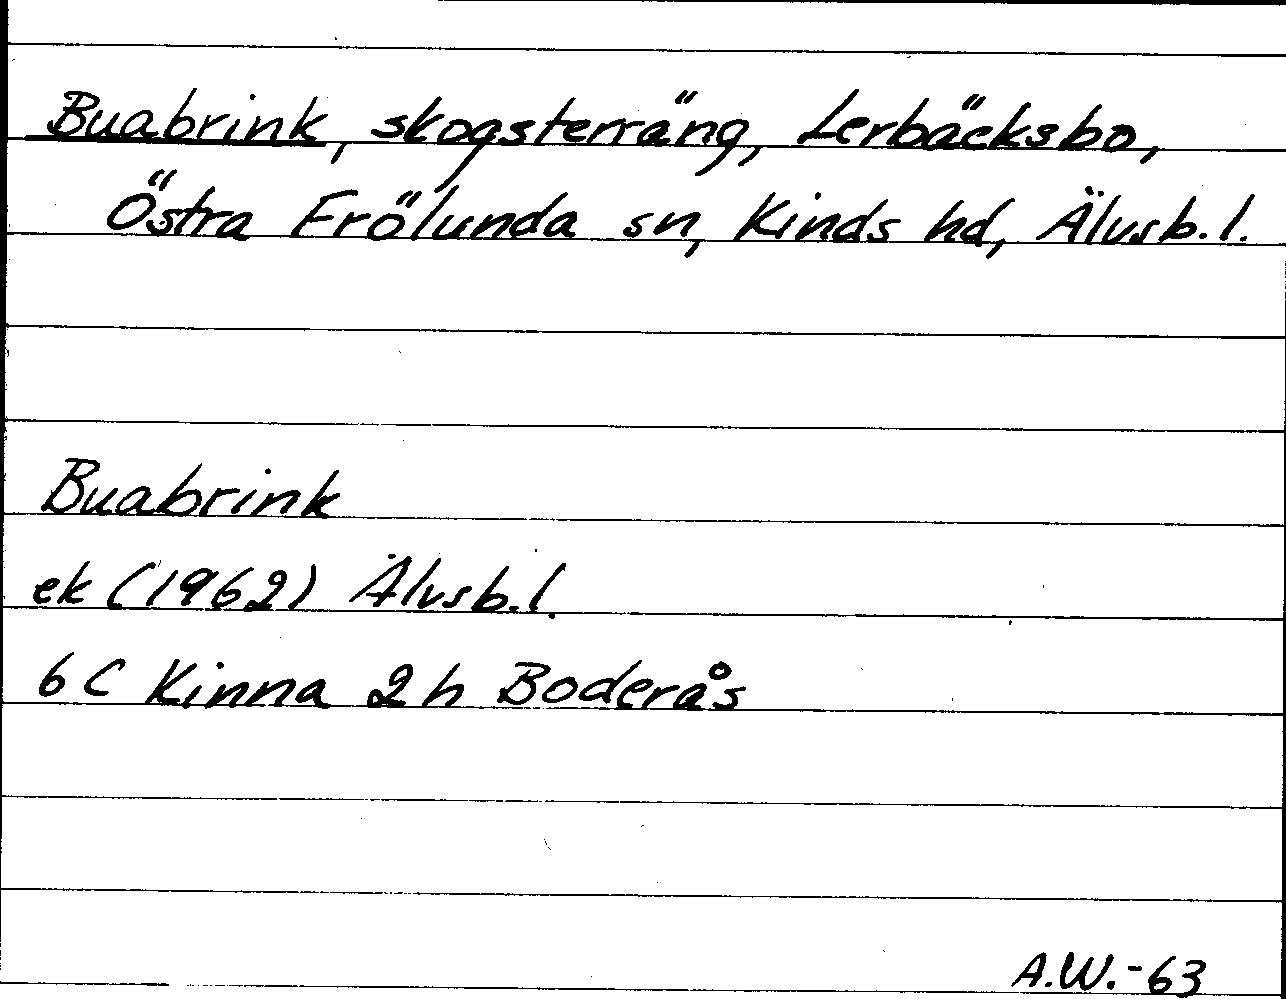 Buabrink, skogsterräng, Lerbäcksbo,
Östra Frölunda sn, Kinds hd, Älvsb.l.
Buabrink
ek (1962) Älvsb.l.
6 C Kinna 2 h Boderås
A.W.-63